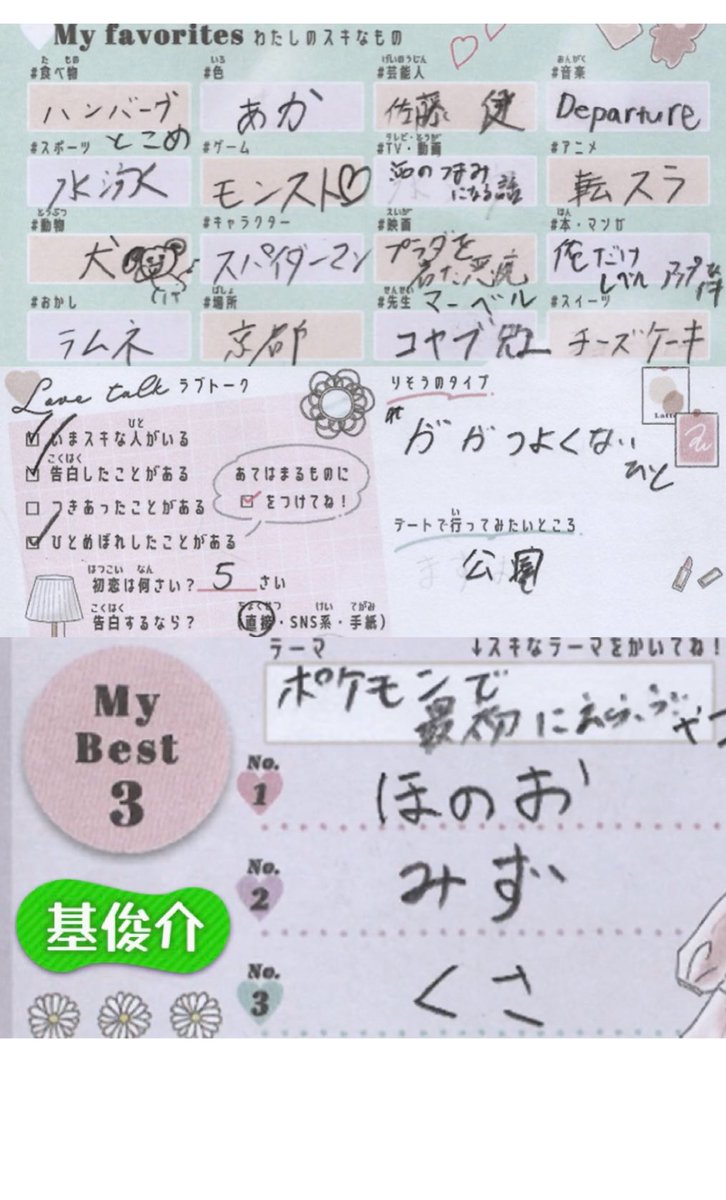 My favorites わたしのスキなもの
た もの いろ げいのうじん おんがく
#食べ物 #色 #芸能人 #音楽
ハンバーグ とこめ あか 佐藤 健 Departure
テレビ・どうが
#スポーツ #ゲーム #TV・動画 #アニメ
水泳 モンスト♡ 酒のつまみになる話 転スラ
どうぶつ えいが ほん
#動物 #キャラクター #映画 #本・マンガ
犬 スパイダーマン プラダを着た悪魔 マーベル 俺だけレベルアップな件
ばしょ せんせい
#おかし #場所 #先生 #スイーツ
ラムネ 京都 コヤブ チーズケーキ
Love talk ラブトーク
ひと
☑ いまスキな人がいる
こくはく
☑ 告白したことがある
☐ つきあったことがある
☑ ひとめぼれしたことがある
あてはまるものに
☑ をつけてね!
はつこい なん
初恋は何さい? 5 さい
こくはく ちょくせつ けい てがみ
告白するなら? (直接・SNS系・手紙)
りそうのタイプ
ガがつよくない
ひと
Latte
い
デートで行ってみたいところ
公園
My
Best
3
テーマ ↓スキなテーマをかいてね!
ポケモンで
最初にえらぶやつ
No.
1 ほのお
No.
2 みず
基俊介
No.
3 くさ